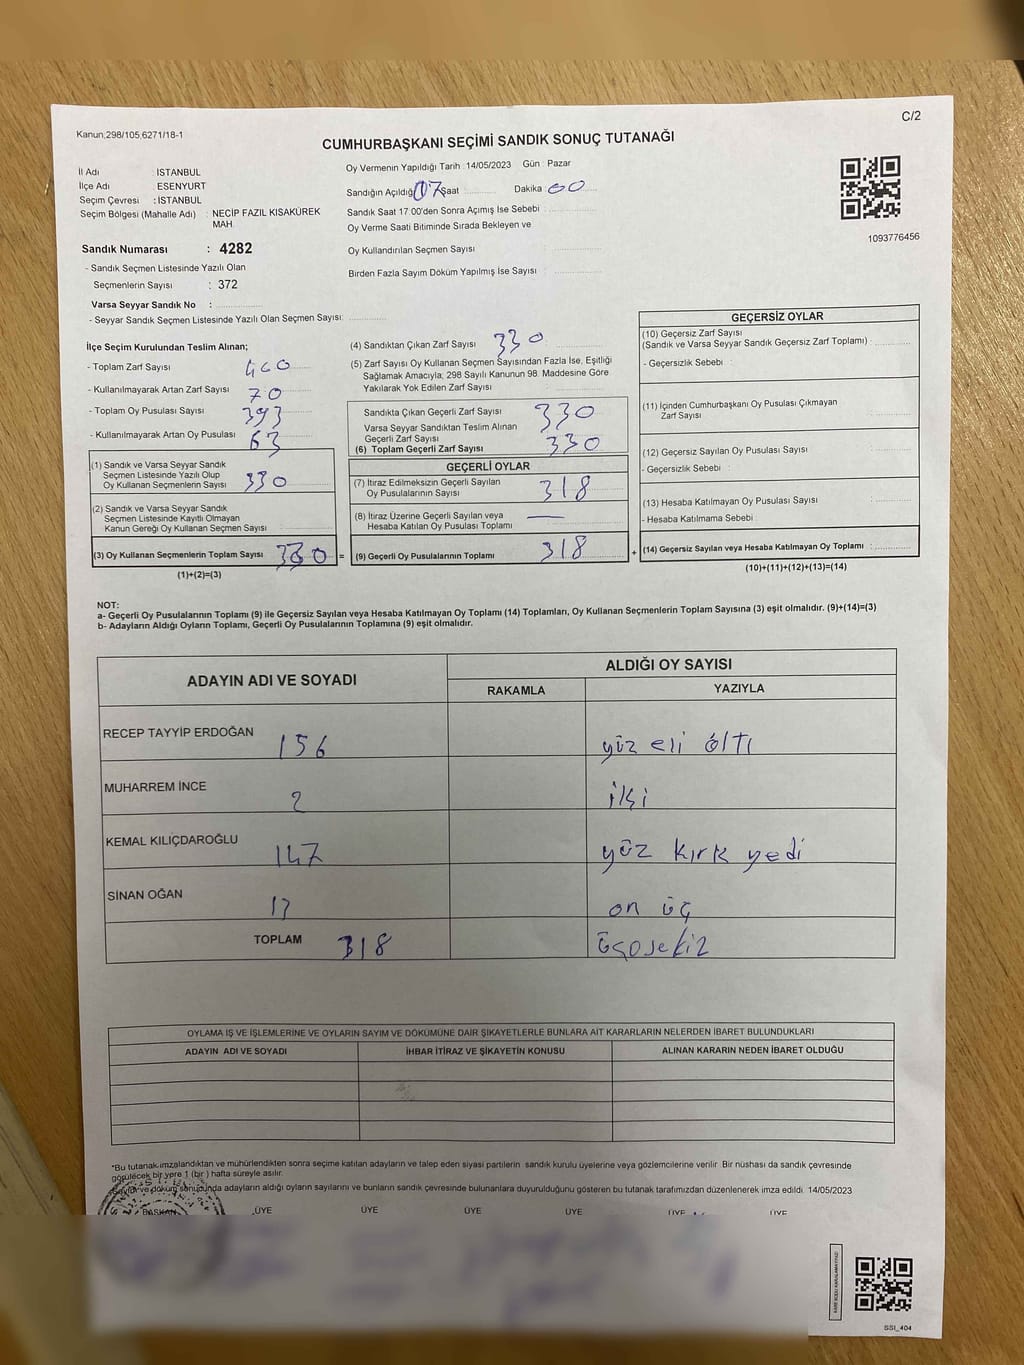 C/2
Kanun;298/105,6271/18-1
CUMHURBAŞKANI SEÇİMİ SANDIK SONUÇ TUTANAĞI
İl Adı İSTANBUL
İlçe Adı ESENYURT
Seçim Çevresi : İSTANBUL
Seçim Bölgesi (Mahalle Adı) : NECİP FAZIL KISAKÜREK
MAH.
Sandık Numarası : 4282
- Sandık Seçmen Listesinde Yazılı Olan
Seçmenlerin Sayısı : 372
Varsa Seyyar Sandık No :
- Seyyar Sandık Seçmen Listesinde Yazılı Olan Seçmen Sayısı:
Oy Vermenin Yapıldığı Tarih : 14/05/2023 Gün : Pazar
Sandığın Açıldığı 07 Saat Dakika 00
Sandık Saat 17:00'den Sonra Açımış İse Sebebi :
Oy Verme Saati Bitiminde Sırada Bekleyen ve
Oy Kullandırılan Seçmen Sayısı
Birden Fazla Sayım Döküm Yapılmış İse Sayısı :
1093776456
İlçe Seçim Kurulundan Teslim Alınan;
- Toplam Zarf Sayısı 400
- Kullanılmayarak Artan Zarf Sayısı 70
- Toplam Oy Pusulası Sayısı 393
- Kullanılmayarak Artan Oy Pusulası 63
(1) Sandık ve Varsa Seyyar Sandık
Seçmen Listesinde Yazılı Olup
Oy Kullanan Seçmenlerin Sayısı 330
(2) Sandık ve Varsa Seyyar Sandık
Seçmen Listesinde Kayıtlı Olmayan
Kanun Gereği Oy Kullanan Seçmen Sayısı
(3) Oy Kullanan Seçmenlerin Toplam Sayısı 330 =
(1)+(2)=(3)
(4) Sandıktan Çıkan Zarf Sayısı 330
(5) Zarf Sayısı Oy Kullanan Seçmen Sayısından Fazla İse, Eşitliği
Sağlamak Amacıyla; 298 Sayılı Kanunun 98. Maddesine Göre
Yakılarak Yok Edilen Zarf Sayısı
Sandıkta Çıkan Geçerli Zarf Sayısı 330
Varsa Seyyar Sandıktan Teslim Alınan
Geçerli Zarf Sayısı
(6) Toplam Geçerli Zarf Sayısı 330
GEÇERLİ OYLAR
(7) İtiraz Edilmeksizin Geçerli Sayılan
Oy Pusulalarının Sayısı 318
(8) İtiraz Üzerine Geçerli Sayılan veya
Hesaba Katılan Oy Pusulası Toplamı —
(9) Geçerli Oy Pusulalarının Toplamı 318 +
GEÇERSİZ OYLAR
(10) Geçersiz Zarf Sayısı
(Sandık ve Varsa Seyyar Sandık Geçersiz Zarf Toplamı) :
- Geçersizlik Sebebi :
(11) İçinden Cumhurbaşkanı Oy Pusulası Çıkmayan
Zarf Sayısı
(12) Geçersiz Sayılan Oy Pusulası Sayısı :
- Geçersizlik Sebebi :
(13) Hesaba Katılmayan Oy Pusulası Sayısı :
- Hesaba Katılmama Sebebi :
(14) Geçersiz Sayılan veya Hesaba Katılmayan Oy Toplamı :
(10)+(11)+(12)+(13)=(14)
NOT:
a- Geçerli Oy Pusulalarının Toplamı (9) ile Geçersiz Sayılan veya Hesaba Katılmayan Oy Toplamı (14) Toplamları, Oy Kullanan Seçmenlerin Toplam Sayısına (3) eşit olmalıdır. (9)+(14)=(3)
b- Adayların Aldığı Oyların Toplamı, Geçerli Oy Pusulalarının Toplamına (9) eşit olmalıdır.
ADAYIN ADI VE SOYADI ALDIĞI OY SAYISI
RAKAMLA YAZIYLA
RECEP TAYYİP ERDOĞAN 156 yüz eli altı
MUHARREM İNCE 2 iki
KEMAL KILIÇDAROĞLU 147 yüz kırk yedi
SİNAN OĞAN 13 on üç
TOPLAM 318 üçosekiz
OYLAMA İŞ VE İŞLEMLERİNE VE OYLARIN SAYIM VE DÖKÜMÜNE DAİR ŞİKAYETLERLE BUNLARA AİT KARARLARIN NELERDEN İBARET BULUNDUKLARI
ADAYIN ADI VE SOYADI İHBAR İTİRAZ VE ŞİKAYETİN KONUSU ALINAN KARARIN NEDEN İBARET OLDUĞU
*Bu tutanak imzalandıktan ve mühürlendikten sonra seçime katılan adayların ve talep eden siyasi partilerin sandık kurulu üyelerine veya gözlemcilerine verilir. Bir nüshası da sandık çevresinde
görülecek bir yere 1 (bir ) hafta süreyle asılır.
Sayım ve döküm sonucunda adayların aldığı oyların sayılarını ve bunların sandık çevresinde bulunanlara duyurulduğunu gösteren bu tutanak tarafımızdan düzenlenerek imza edildi. 14/05/2023
BAŞKAN ÜYE ÜYE ÜYE ÜYE ÜYE ÜYE
SSI_404